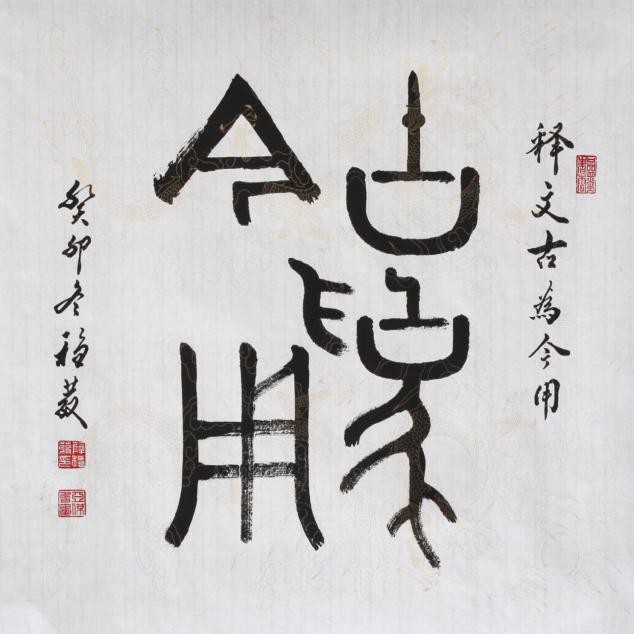 古為
今用
释文古為今用
癸卯冬